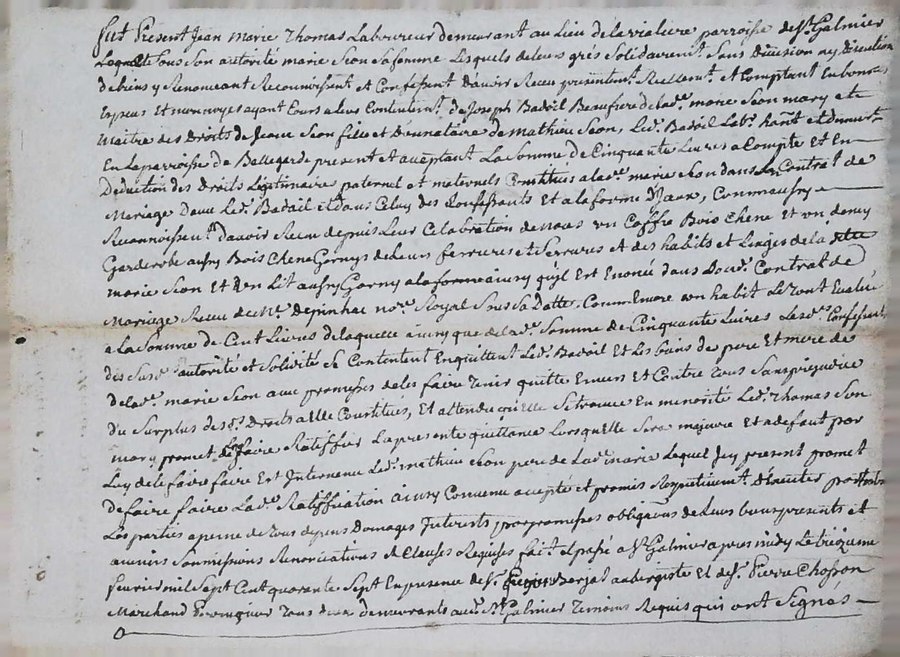 fut Présent Jean marie Thomas Laboureur demeurant au Lieu de parroisse de St. Galmier
Lequel et Sous Son autorité marie Sion Sa femme Lesquels de leurs grés Solidairement Sans Division ny
de biens y Renonceant Reconnoissent et Confessent D'avoir Recu présentemt. Réellemt. et Comptant En bonnes
Especes et monnoye ayant Cours a leur Contentemt. de Joseph Badoil Beaufrere de lad. marie Sion mary et
Maitre des Droits de Jeane Sion fille et Donnataire de Mathieu Sion, Led. Badoil Lab. et demeurt.
En La parroisse de Bellegarde présent et acceptant La Somme de Cinquante Livres a Compte Et En
Déduction des Droits Légitimaire paternel et maternels Constitués a lad. marie Sion dans Le Contrat de
Mariage Davec Led. Badoil et dans Celuy des Confessants Et a la forme D'yceux, Comm'aussy
Reconnoissent D'avoir Recu depuis Leur Célébration de nous un Coffre Bois Chene et un demy
Garderobe aussy Bois Chene Garnys de Leurs ferrures et Serrures et des habits et Linges de la
marie Sion Et d'un Lit aussy Garny a la forme ainsy qu'il Est Enoncé dans Contrat de
Mariage Recu de Me. Depinhac nore. Royal Sous Sa Datte. Comm'encore un habit Le tout Evalué
a La Somme de Cent Livres de laquelle ainsy que de lad. Somme de Cinquante Livres Lesd. Confessants
des Susd. autorité et Solidité Se Contentent En quittent Led. Badoil Et Les biens de pere Et mere de
de lad. marie Sion avec promesses de les faire tenir quitte Envers Et Contre tous Sans préjudice
du Surplus des Droits a Elle Constitués, Et attendu qu'elle Se trouve En minorité Led. Thomas Son
mary promet de faire Ratiffier La présente quittance Lorsqu'elle Sera majeure Et a défaut par
Luy de le faire faire Est Intervenu Led. mathieu Sion pere de Lad. marie Lequel Icy présent promet
de faire faire Lad. Ratiffication ainsy Convenu accepté et promis Respectivemt. D'executer par
Les parties a peine de tous depens Domages Interests par promesses obligaons de Leurs biens présents et
avenirs Soumissions Renonciations et Clauses Requises fait et passé a St. Galmier apres midy Le treizieme
fevrier mil Sept Cent quarante Sept En présence de Sr. Berjat aubergiste Et de Sr. Pierre Chosson
Marchand tous deux demeurants aud. St. Galmier témoins Requis qui ont Signés